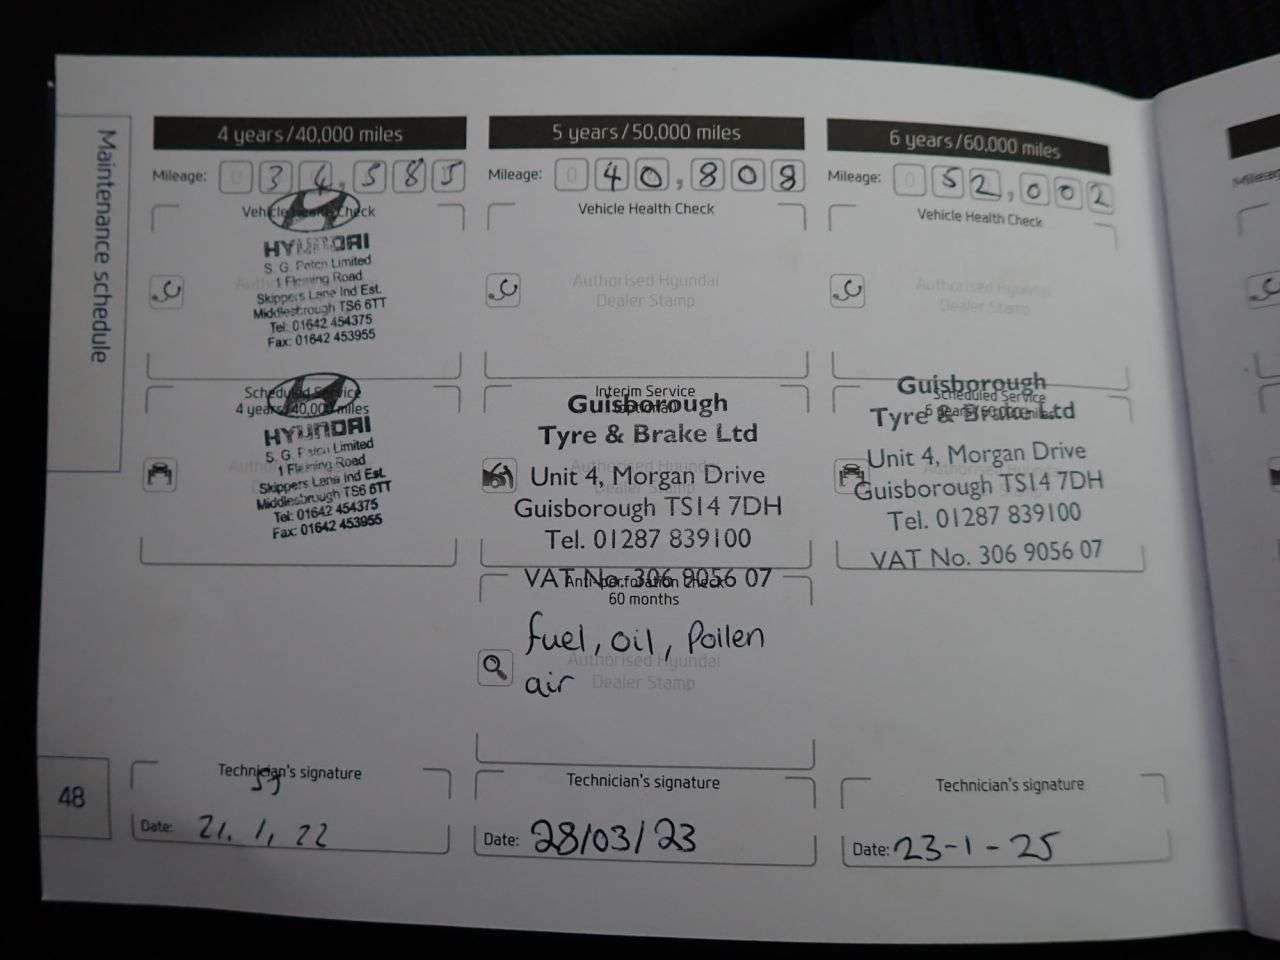 Maintenance schedule
4 years/40,000 miles
Mileage: 0 3 4, 5 8 5
Vehicle Health Check
HYUNDAI
S. G. Petch Limited
1 Fleming Road
Skippers Lane Ind Est.
Middlesbrough TS6 6TT
Tel: 01642 454375
Fax: 01642 453955
Scheduled Service
4 years/40,000 miles
HYUNDAI
S. G. Petch Limited
1 Fleming Road
Skippers Lane Ind Est.
Middlesbrough TS6 6TT
Tel: 01642 454375
Fax: 01642 453955
Technician's signature
sg
Date: 21. 1, 22
5 years/50,000 miles
Mileage: 0 4 0, 8 0 8
Vehicle Health Check
Authorised Hyundai
Dealer Stamp
Interim Service
(optional)
Guisborough
Tyre & Brake Ltd
Unit 4, Morgan Drive
Guisborough TS14 7DH
Tel. 01287 839100
VAT No. 306 9056 07
Anti-perforation Check
60 months
fuel, oil, Pollen
air
Authorised Hyundai
Dealer Stamp
Technician's signature
Date: 28/03/23
6 years/60,000 miles
Mileage: 0 5 2, 0 0 2
Vehicle Health Check
Authorised Hyundai
Dealer Stamp
Scheduled Service
6 years/60,000 miles
Guisborough
Tyre & Brake Ltd
Unit 4, Morgan Drive
Guisborough TS14 7DH
Tel. 01287 839100
VAT No. 306 9056 07
Technician's signature
Date: 23-1-25
48